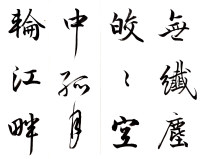 無纖塵
皎〻空
中孤月
輪江畔